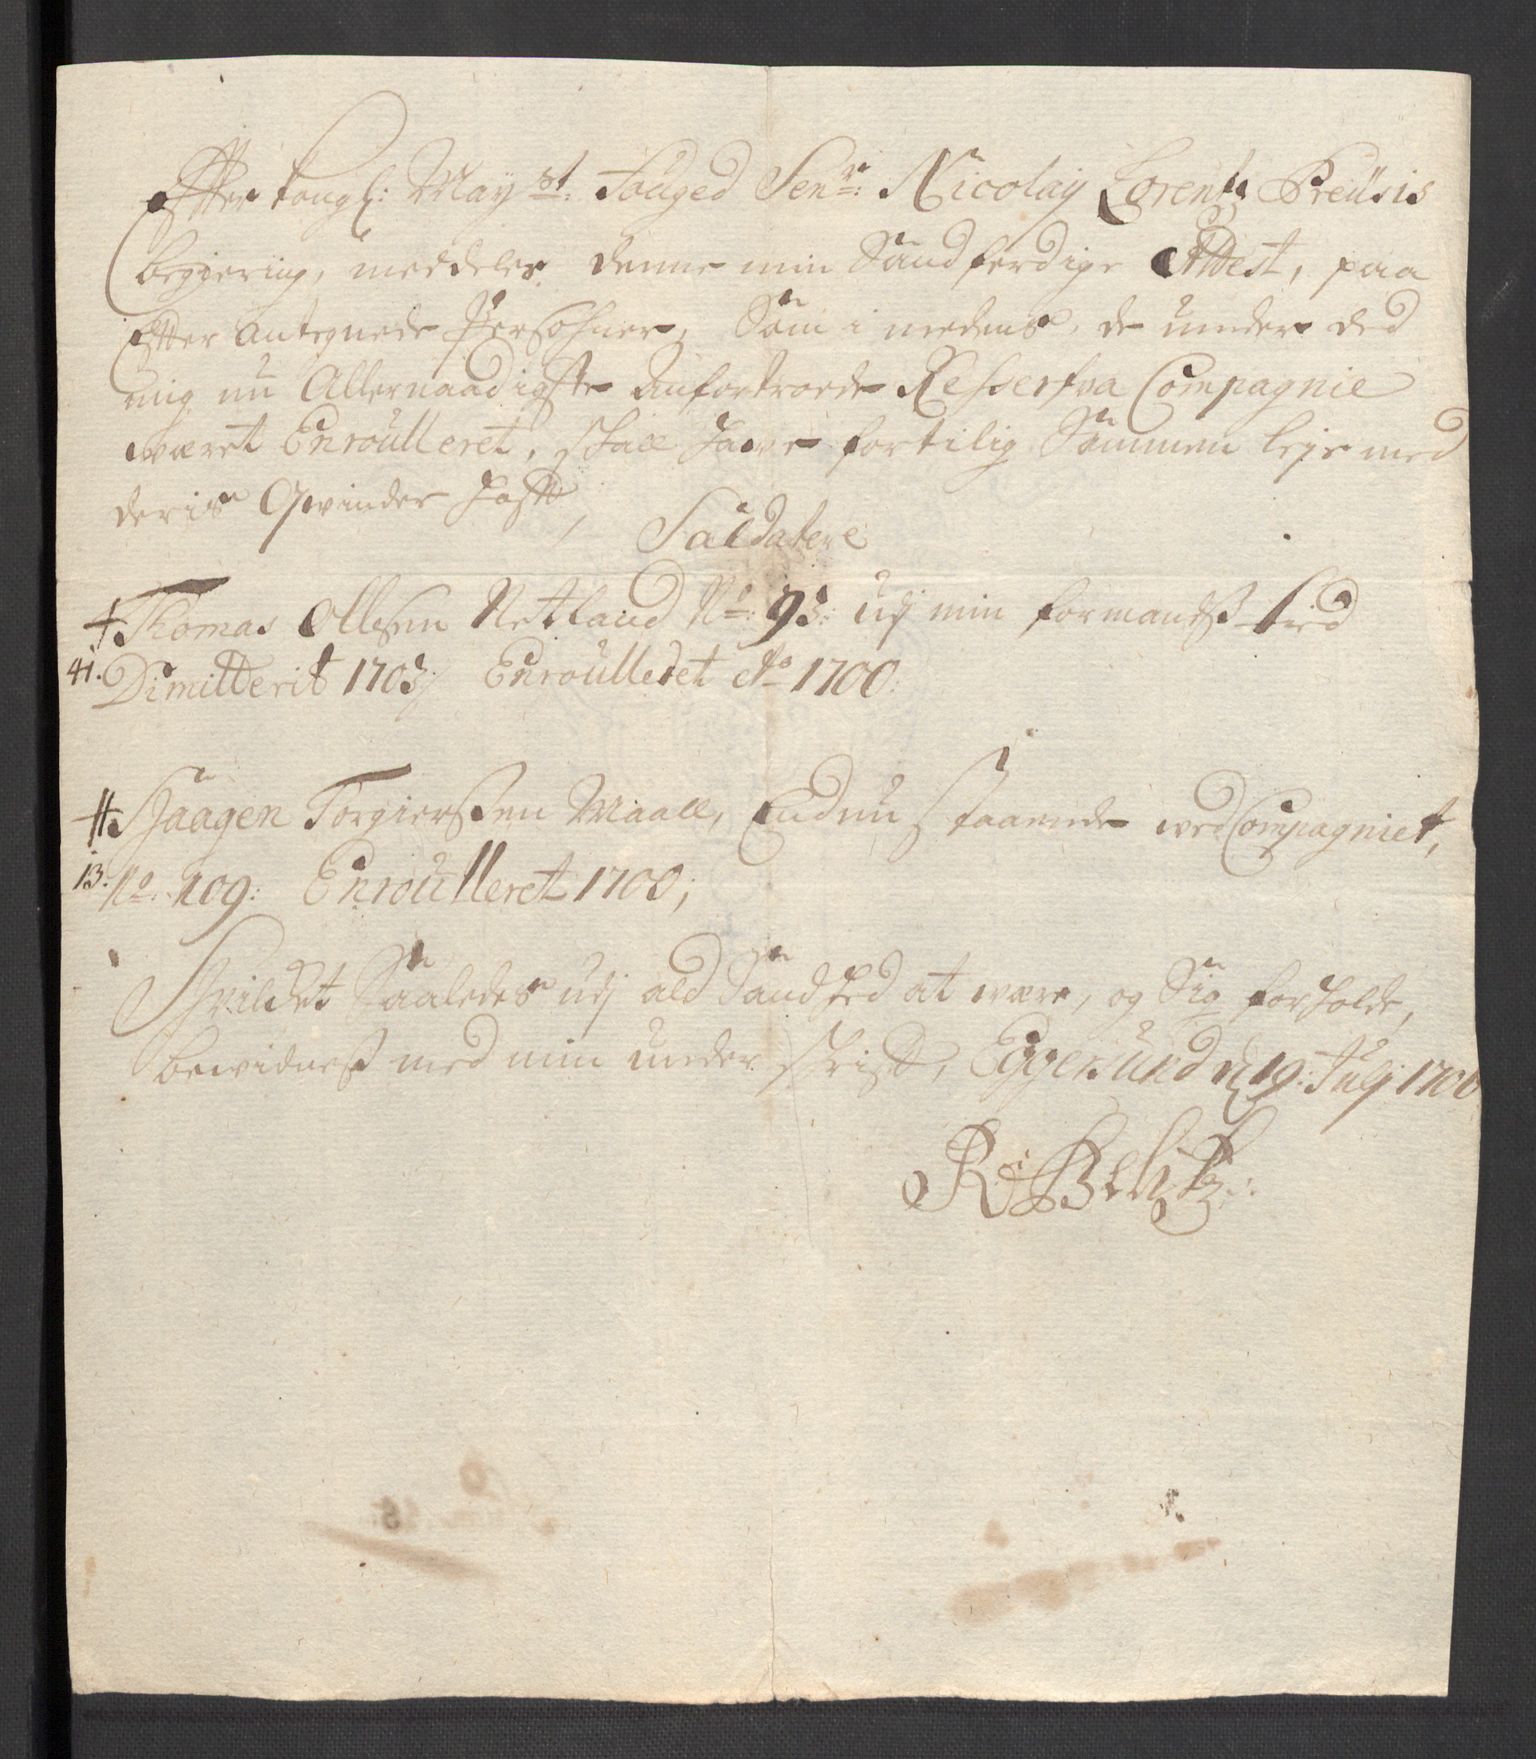 Efter kongl: Mayst: Fouged Senr: Nicolaij Lorentz Preüsis
begiering, meddeles denne min Sandferdige Attest, paa
Efter antegnede Persohner, Som i medens de under ded
mig nu Allernaadigste anfortroede Resserfva Compagnie
været Enroulleret, skall hafve for tilig Sammen leje med
deris Qvinder hafft,
Saldatere
Thomas Ollesen Netland No: 93: udj min formands tiid
41. Dimitterit 1703; Enroulleret Ao 1700.
Haagen Torgiersen Maall, Endnu staaende ved Compagniet,
13: No. 109: Enroulleret 1700;
Hvilchet Saaledes udj ald Sandhed at være, og Sig forholde,
bevidnes med min underschrift, Eggersund d 19: Julj 1706
R: Belitz: